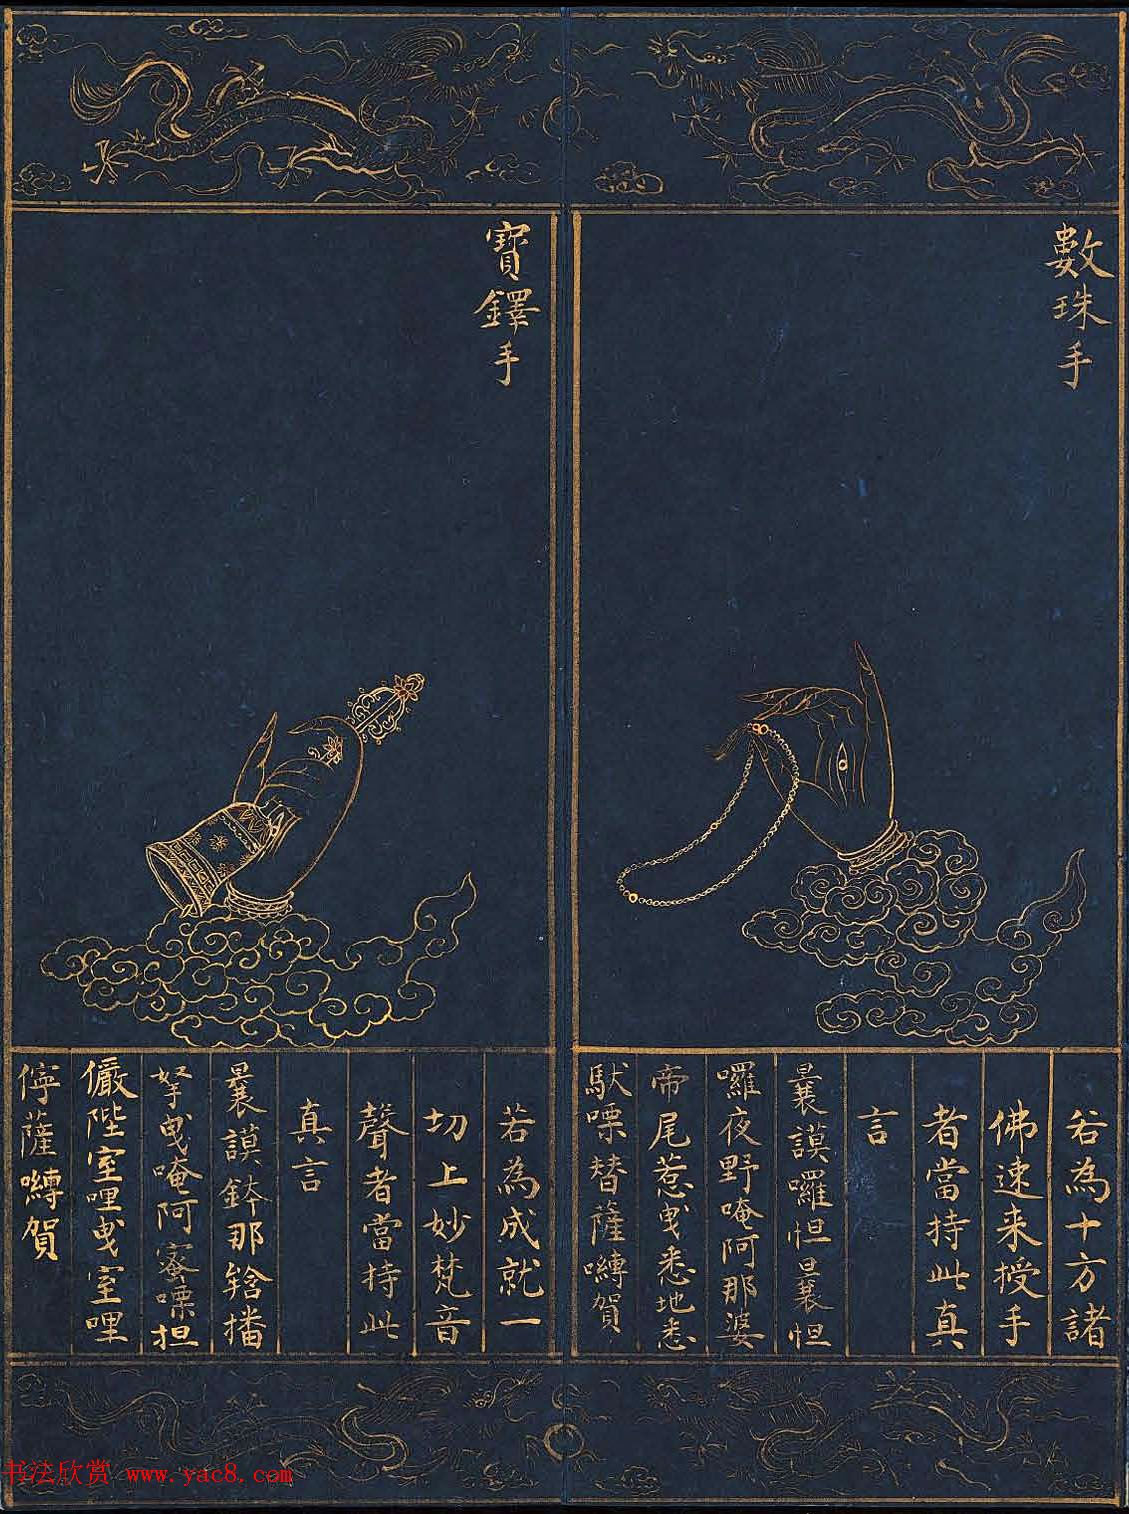 數珠手
若為十方諸
佛速来授手
者當持此真
言
曩謨囉怛曩怛
囉夜野唵阿那婆
帝尾惹曳悉地悉
馱㗚替薩嚩賀
寶鐸手
若為成就一
切上妙梵音
聲者當持此
真言
曩謨鉢那𤚥播
拏曳唵阿蜜㗚担
儼陛室哩曳室哩
𩕳薩嚩賀
书法欣赏 www.yac8.com